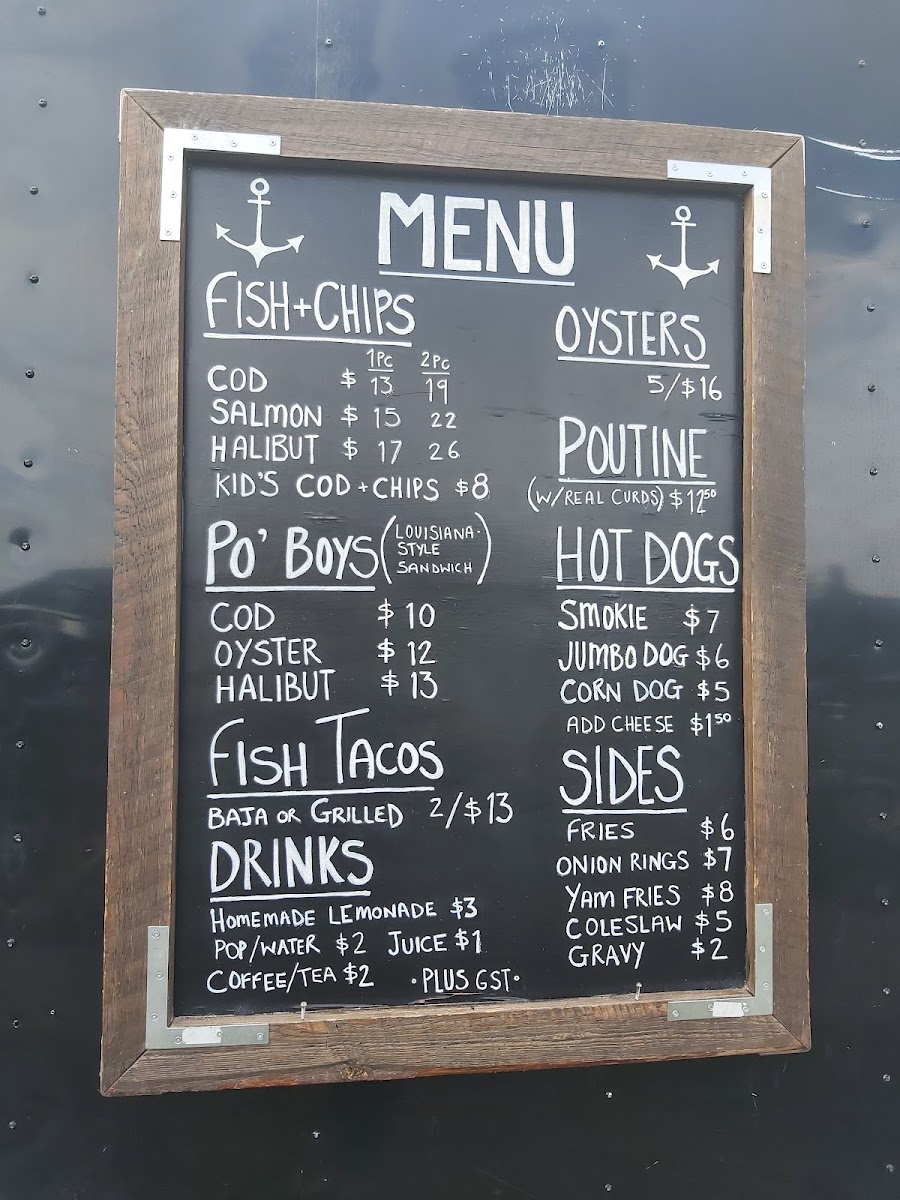 MENU
FISH+CHIPS
1PC 2PC
COD $ 13 19
SALMON $ 15 22
HALIBUT $ 17 26
KID'S COD + CHIPS $8
PO' BOYS (LOUISIANA-
STYLE
SANDWICH)
COD $10
OYSTER $12
HALIBUT $13
FISH TACOS
BAJA OR GRILLED 2/$13
DRINKS
HOMEMADE LEMONADE $3
POP/WATER $2 JUICE $1
COFFEE/TEA $2 •PLUS GST•
OYSTERS
5/$16
POUTINE
(W/REAL CURDS) $12⁵⁰
HOT DOGS
SMOKIE $7
JUMBO DOG $6
CORN DOG $5
ADD CHEESE $1⁵⁰
SIDES
FRIES $6
ONION RINGS $7
YAM FRIES $8
COLESLAW $5
GRAVY $2